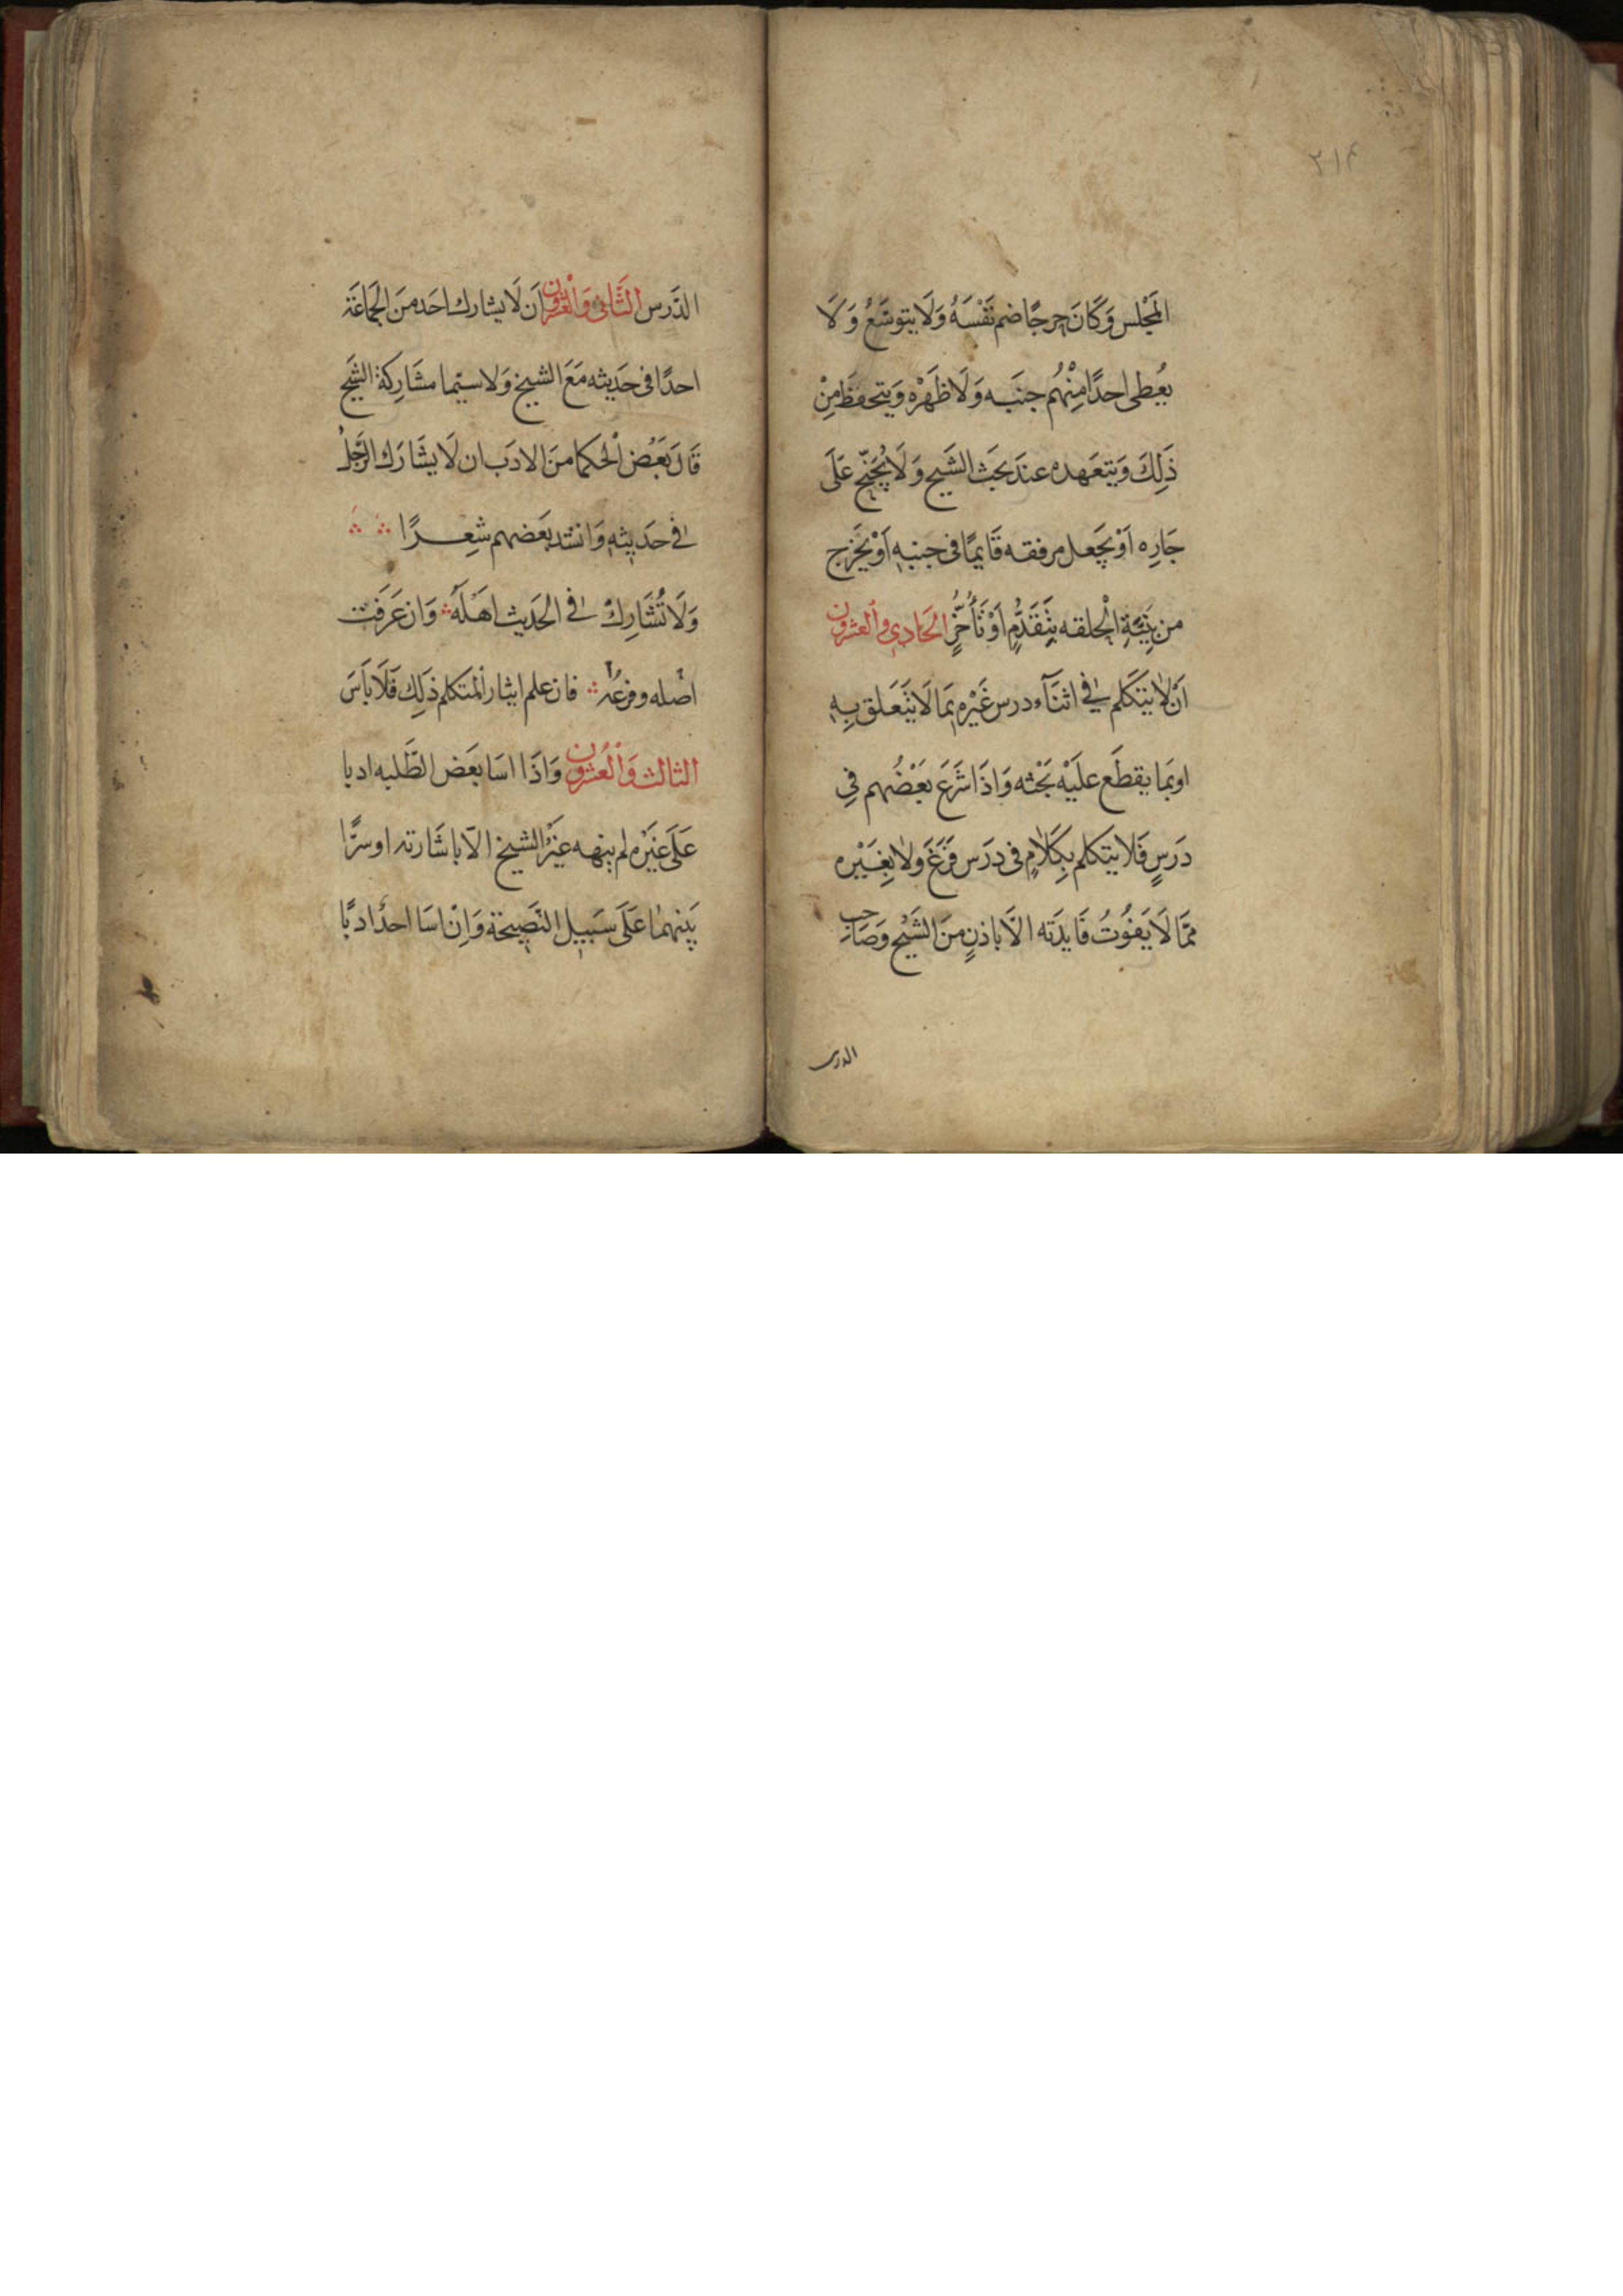 ٢١٤
المَجْلس وَكَانَ حرجًا ضم نَفْسَهُ وَلَا يتوسَّعُ وَلَا
يُعطى احدًا مِنْهُم جنبَه وَلَا ظَهْرَه وَيتحفظَ مِنْ
ذَلِكَ وَيتعَهده عندَ بحَث الشَيخ وَلَا يُجَنّح عَلَى
جَارِه اَوْ يَجعل مرفقه قَايمًا فى جنبهِ اَوْ يَخرج
من بِنَيةِ الْحلقه بِتَقَدُّمٍ اَوْ تَأَخُّرٍ الحَادِي وَالعشرون
اَنْ لا يتَكَلم فِي اثنَآء درس غَيْرِه بمَا لَا يَتَعَلق بِهِ
او بمَا يقطَع علَيْه بَحْثه وَاذَا شَرَعَ بَعْضُهم فِي
دَرَسٍ فَلا يتكلم بِكَلامٍ فى دَرَس فَرَغَ وَلا بِغَيْرِه
ممَّا لَا يَفوُتُ فَايدَته الَّا باذنٍ منَ الشَيْخ وَصَاحِبِ
الدرس
الدَرس الثَانى وَالعْشرون اَن لَا يشارك احَد منَ الجَمَاعَة
احدًا فى حَديثه مَعَ الشيخ وَلا سيّما مشَارِكة الشَيخ
قَالَ بَعَض الحكما منَ الادَب ان لَا يشَارَك الرَّجلُ
فِي حَديثهِ وَانشد بَعَضهم شِعرًا
وَلَا تُشَارِكْ فِي الحَديث اهْلَهُ وَان عَرَفت
اصْله وفرعُه فان علم ايثار المتكلم ذَلِك فَلَا بَأسَ
الثالث وَالْعُشرون وَاذَا اسَا بعَض الطَّلبه ادبا
عَلَى غَيْرِه لم ينهه غيْرُ الشيخ الّا باشَارته او سرًّا
بَينهمَا عَلَى سَبيلِ النَصِيحَة وَاِنْ اسَا احدٌ ادبًا